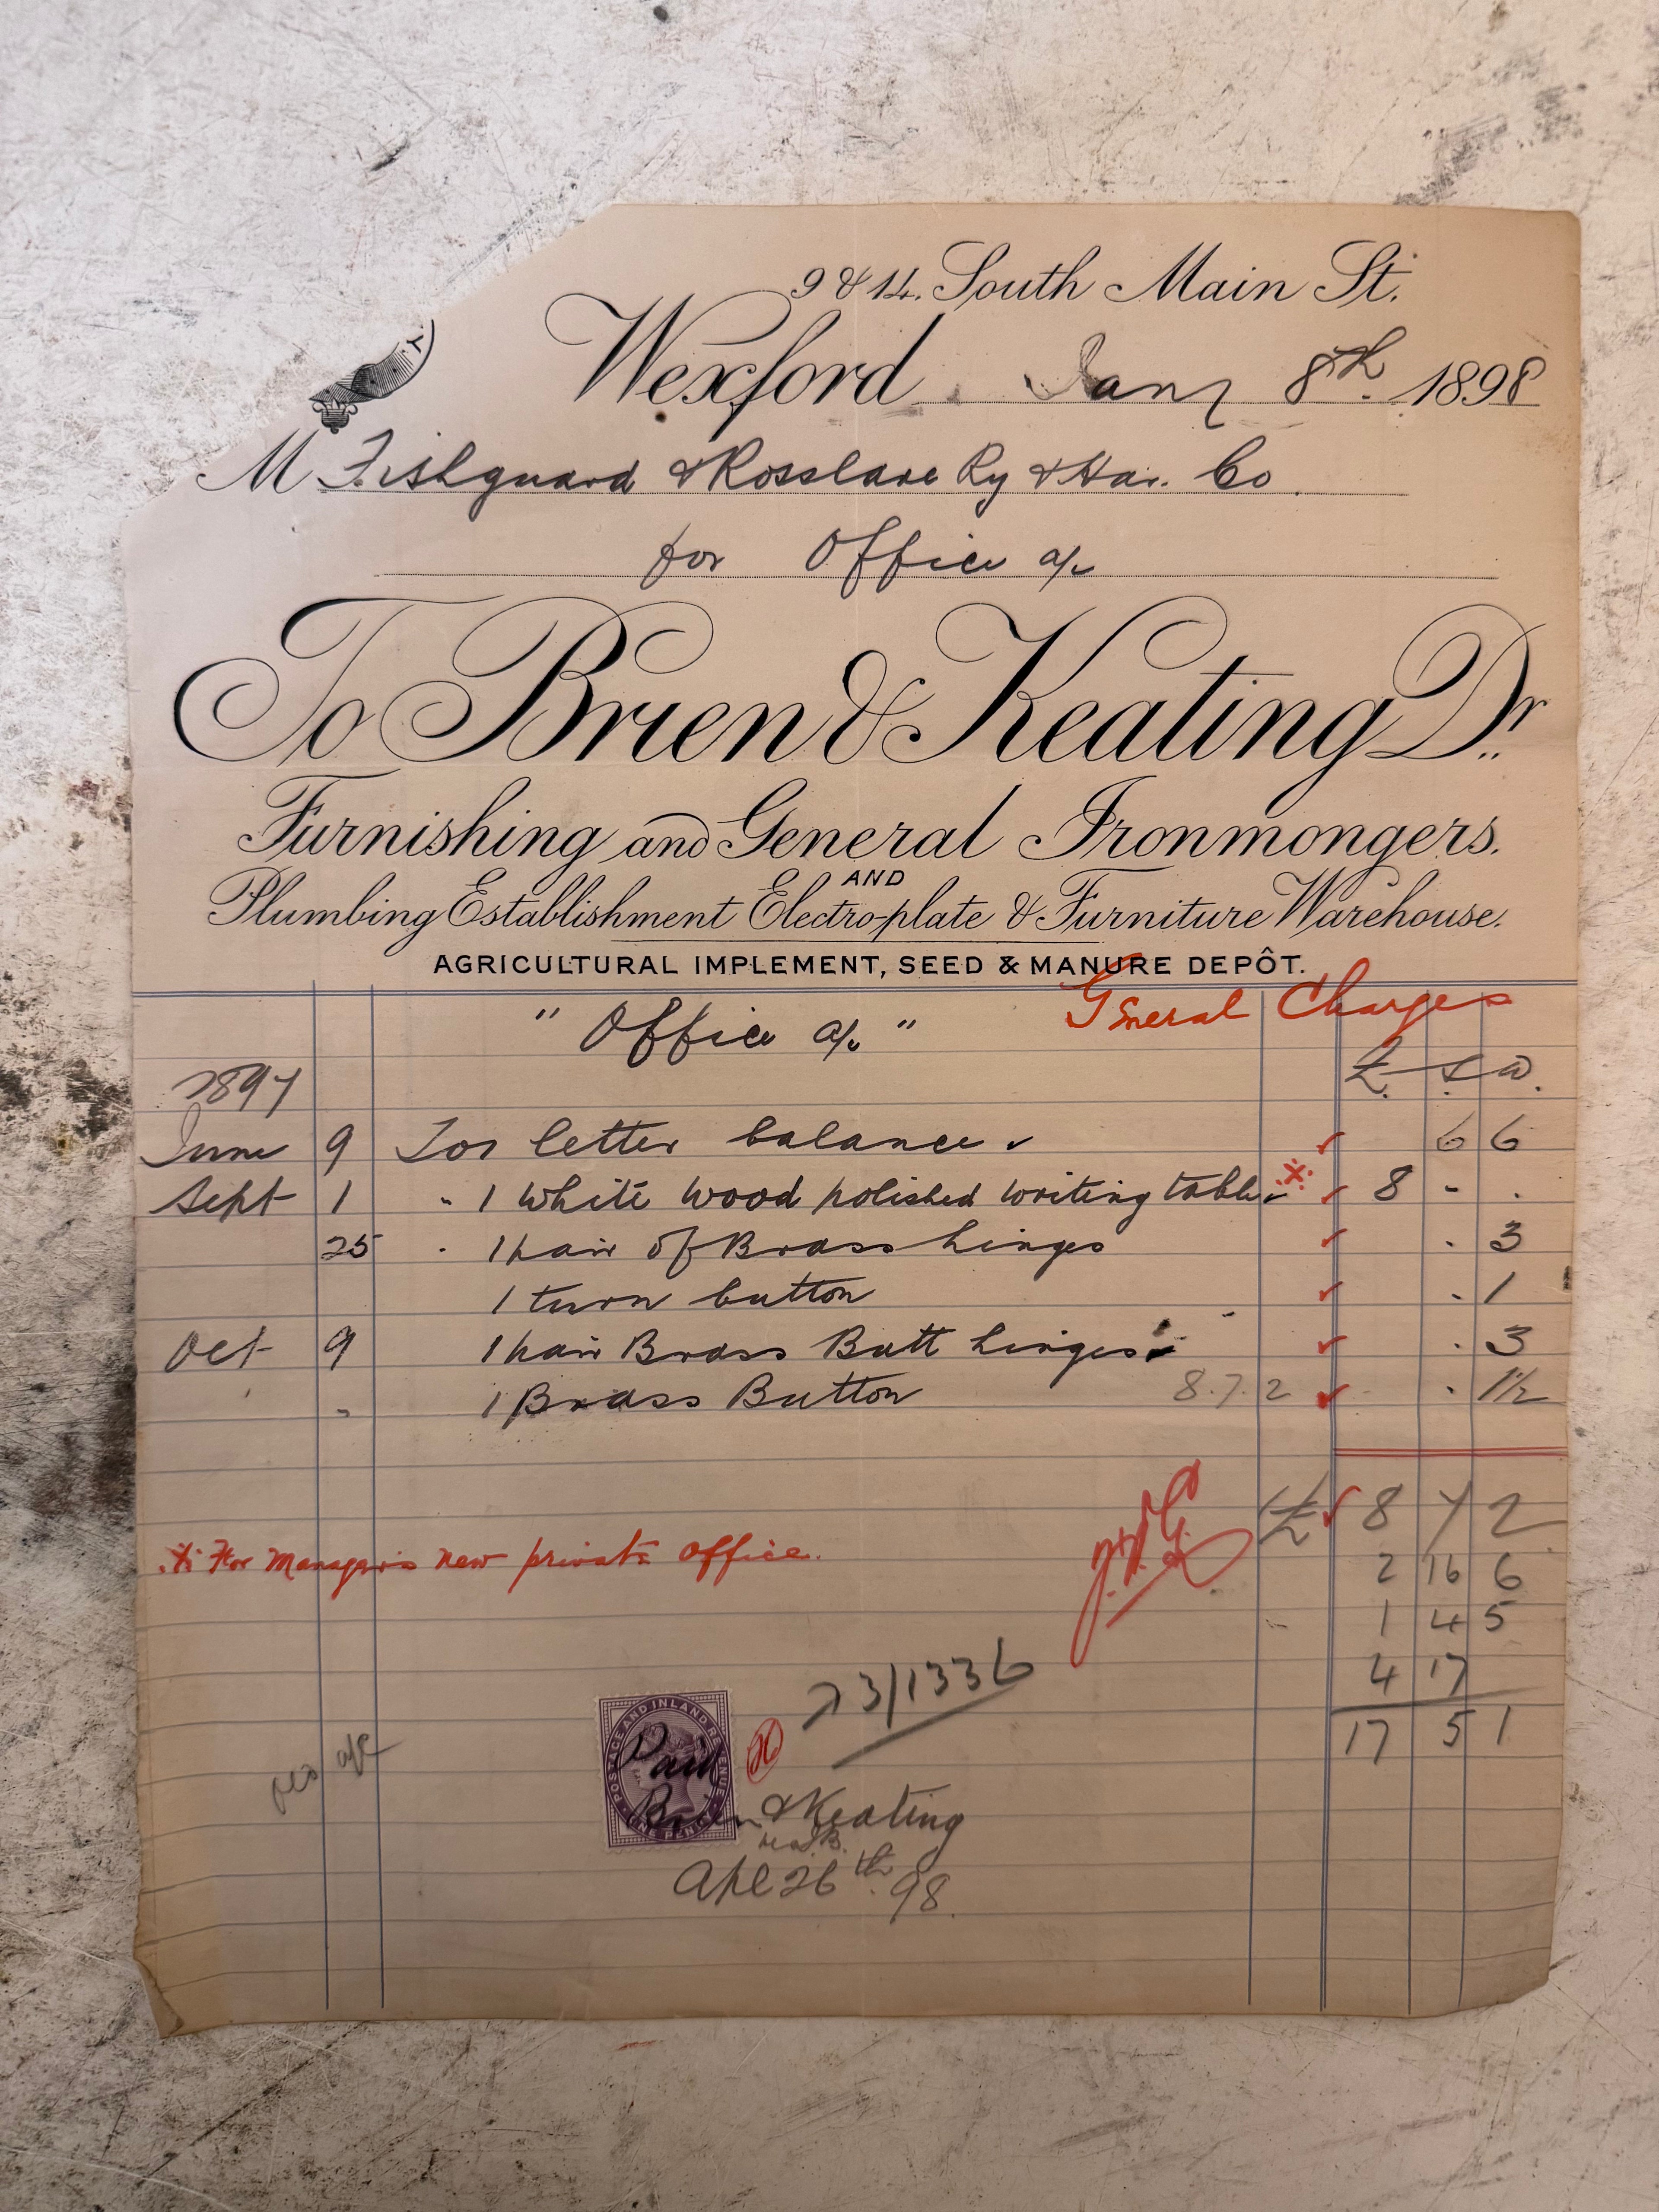 9 & 14. South Main St.
Wexford. Jany 8th. 1898
M Fishguard & Rosslare Ry & Har. Co.
for Office a/c
To Brien & Keating Dr.
Furnishing and General Ironmongers.
AND
Plumbing Establishment Electro-plate & Furniture Warehouse.
AGRICULTURAL IMPLEMENT, SEED & MANURE DEPÔT.
General Charges
" Office a/c "
£ s d.
1897
June 9 For letter balance 6 6
Sept 1 " 1 White wood polished writing table 8 - .
25 " 1 pair of Brass hinges . 3
1 turn button . 1
Oct 9 1 pair Brass Butt hinges . 3
" 1 Brass Button 8.7.2 . 1½
£ 8 7 2
※ For Manager's new private office.
2 16 6
1 4 5
4 17
17 5 1
23/1336
POSTAGE AND INLAND REVENUE
ONE PENNY
Paid
Brien & Keating
Apl 26th. 98.